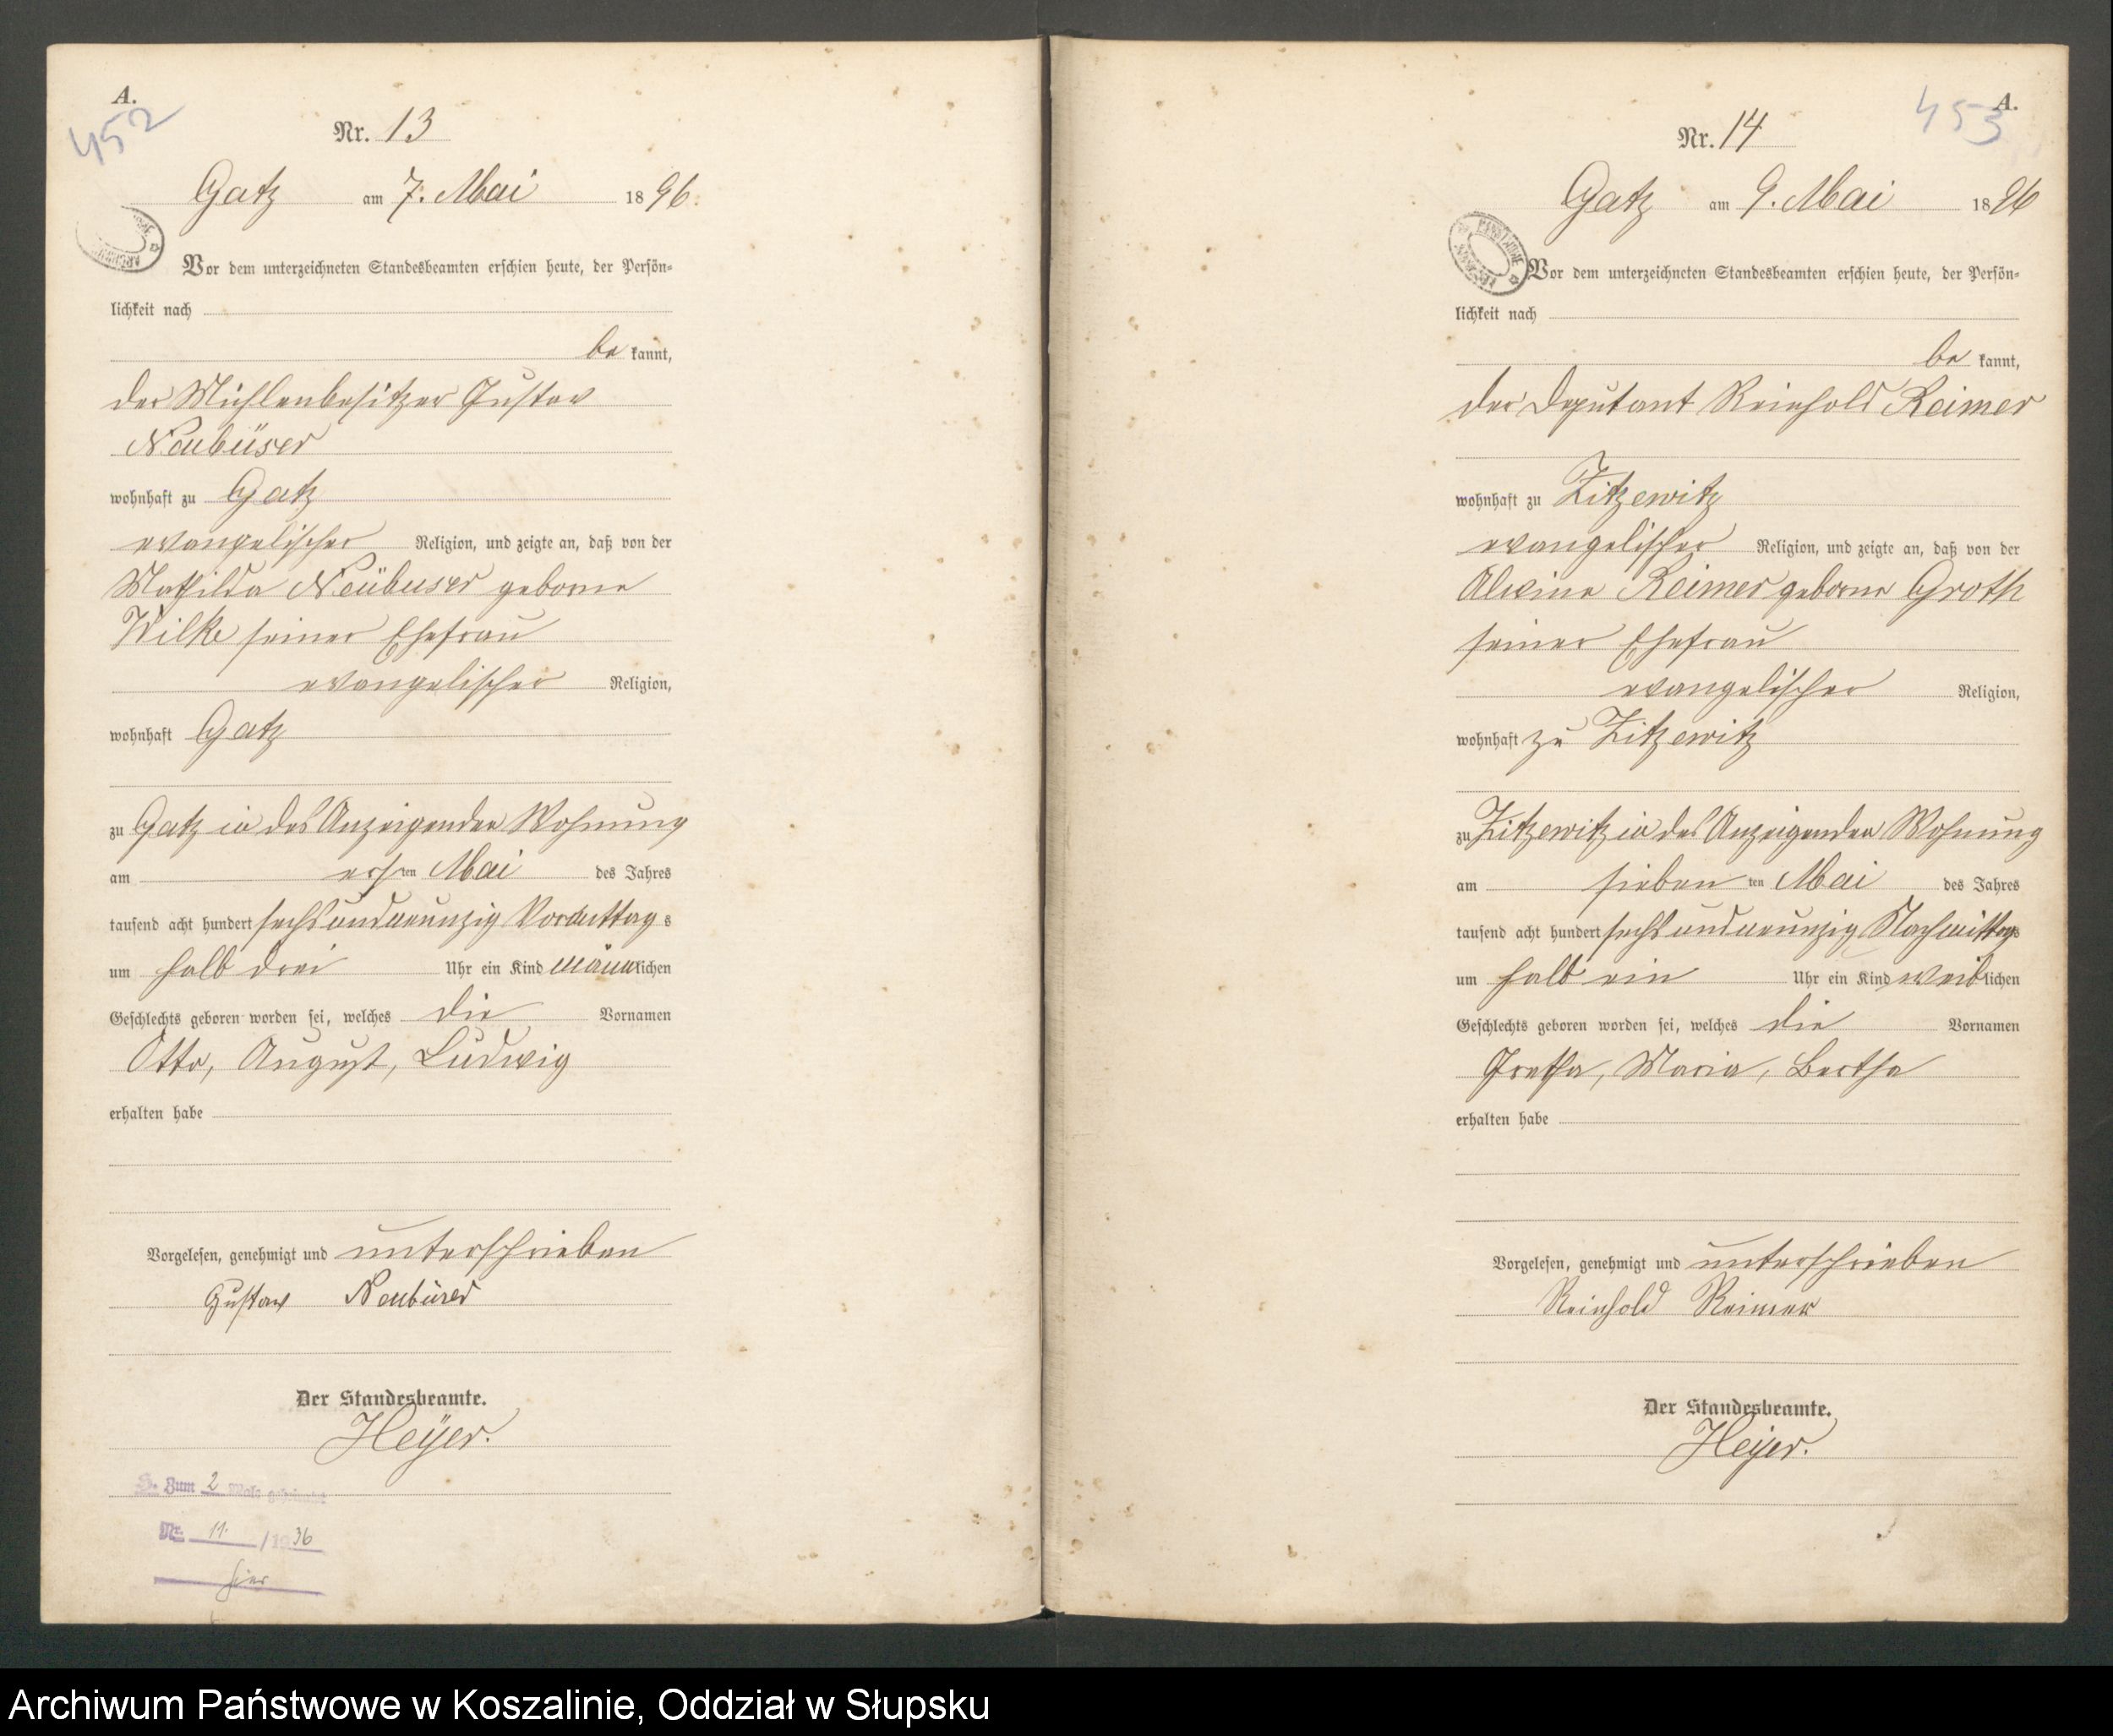 A.
452
Nr. 13
Gatz am 7. Mai 1896.
Vor dem unterzeichneten Standesbeamten erschien heute, der Persön-
lichkeit nach
be kannt,
der Mühlenbesitzer Gustav
Neubüser
wohnhaft zu Gatz
evangelischer Religion, und zeigte an, daß von der
Mathilde Neübuser geborne
Wilke seiner Ehefrau
evangelischer Religion,
wohnhaft Gatz
zu Gatz in des Anzeigenden Wohnung
am ersten Mai des Jahres
tausend acht hundert sechsundneunzig Vormittags
um halb drei Uhr ein Kind männlichen
Geschlechts geboren worden sei, welches die Vornamen
Otto, August, Ludwig
erhalten habe
Vorgelesen, genehmigt und unterschrieben
Gustav Neubüser
Der Standesbeamte.
Heÿer.
Zum 2 Male
Nr. 11. /1936
hier
A.
453
Nr. 14
Gatz am 9. Mai 1896
Vor dem unterzeichneten Standesbeamten erschien heute, der Persön-
lichkeit nach
be kannt,
der Deputant Reinhold Reimer
wohnhaft zu Zitzewitz
evangelischer Religion, und zeigte an, daß von der
Alwine Reimer geborne Groth
seiner Ehefrau
evangelischer Religion,
wohnhaft zu Zitzewitz
zu Zitzewitz in des Anzeigenden Wohnung
am sieben ten Mai des Jahres
tausend acht hundert sechsundneunzig Nachmittags
um halb ein Uhr ein Kind weiblichen
Geschlechts geboren worden sei, welches die Vornamen
Gretha, Maria, Bertha
erhalten habe
Vorgelesen, genehmigt und unterschrieben
Reinhold Reimer
Der Standesbeamte.
Heijer.
Archiwum Państwowe w Koszalinie, Oddział w Słupsku